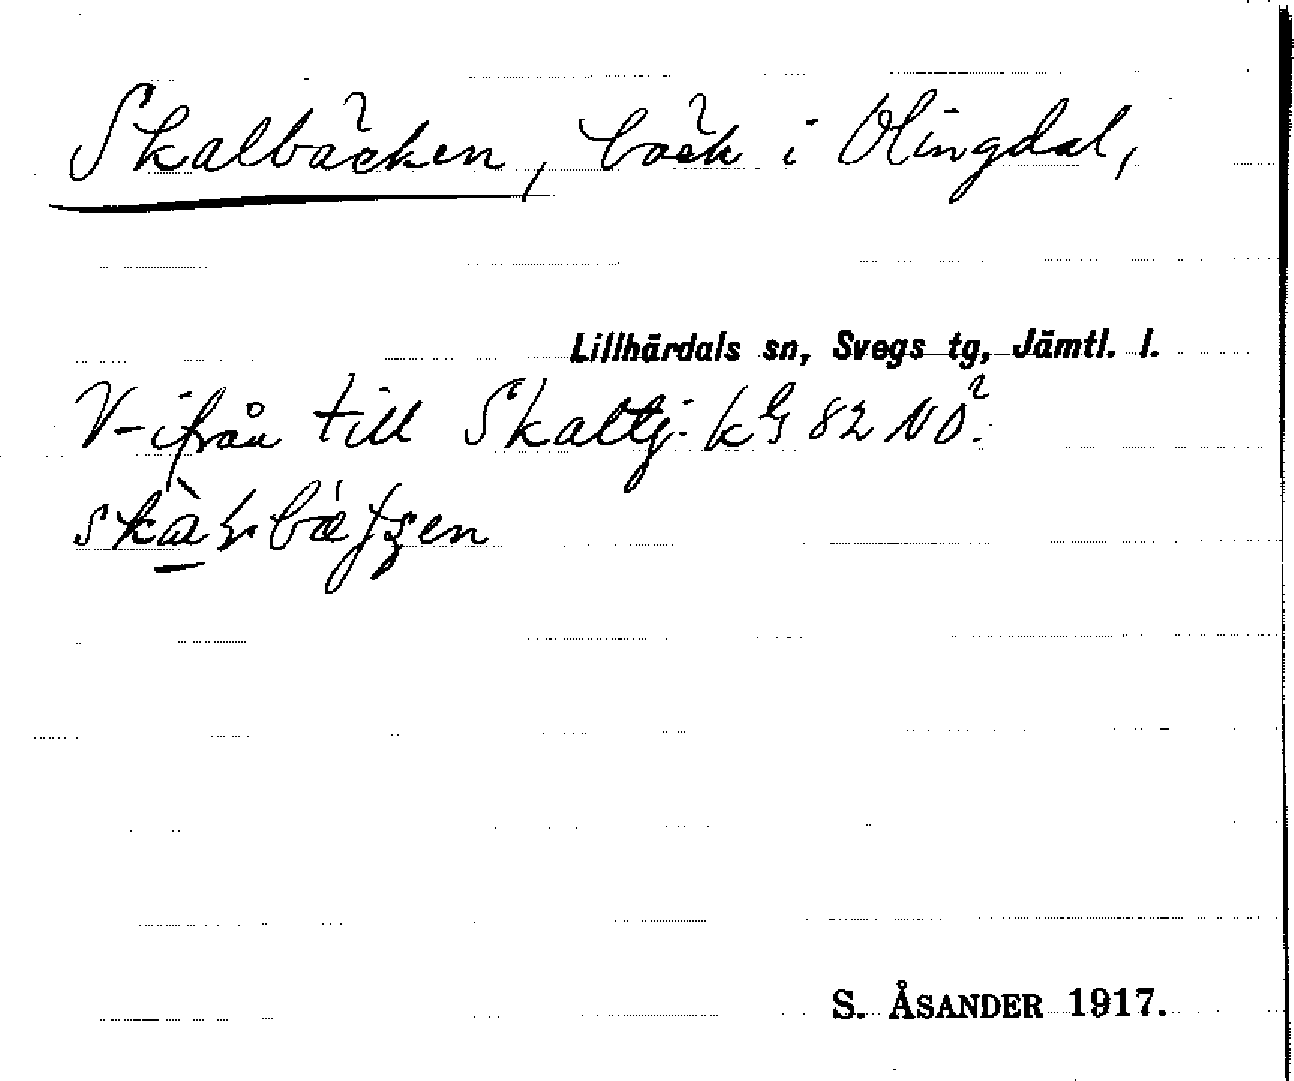 Skalbäcken, bäck i Olingdal,
Lillhärdals sn, Svegs tg, Jämtl. l.
V-ifrån till Skaltj. kG 82 NO.
S. ÅSANDER 1917.